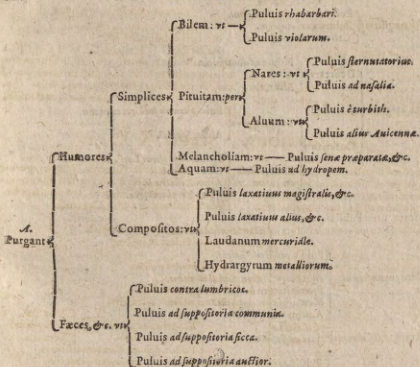 Bilem: vt
Puluis rhabarbari.
Puluis violarum.
Simplices
Pituitam: per
Nares: vt
Puluis sternutatorius.
Puluis ad nasalia.
Aluum: vt
Puluis è turbith.
Puluis alius Auicennæ.
Humores
Melancholiam: vt
Puluis senæ præparatæ, &c.
Aquam: vt
Puluis ad hydropem.
A.
Purgant
Compositos: vt
Puluis laxatiuus magistralis, &c.
Puluis laxatiuus alius, &c.
Laudanum mercuriale.
Hydrargyrum metalliorum.
Fæces, &c. vt
Puluis contra lumbricos.
Puluis ad suppositoria communia.
Puluis ad suppositoria sicca.
Puluis ad suppositoria auctior.